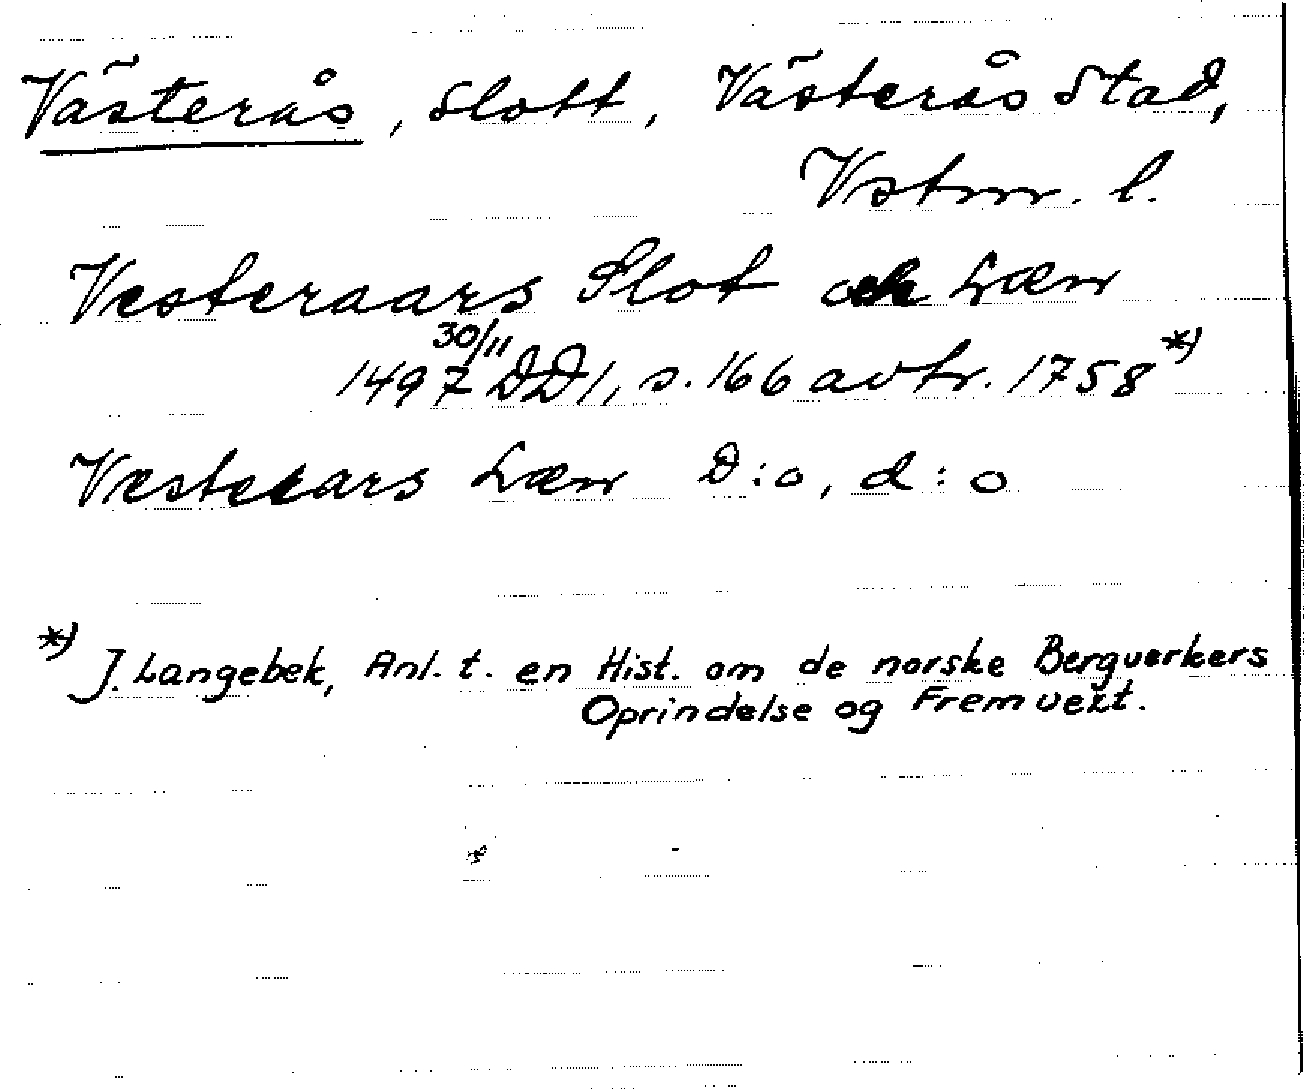 Västerås, slott, Västerås stad,
Vstm. l.
Vesteraars Slot och Læn
1497 30/11 DD1, s. 166 avtr. 1758 *)
Vesteraars Læn D:o, d:o
*) J. Langebek, Anl. t. en Hist. om de norske Bergverkers
Oprindelse og Fremvext.